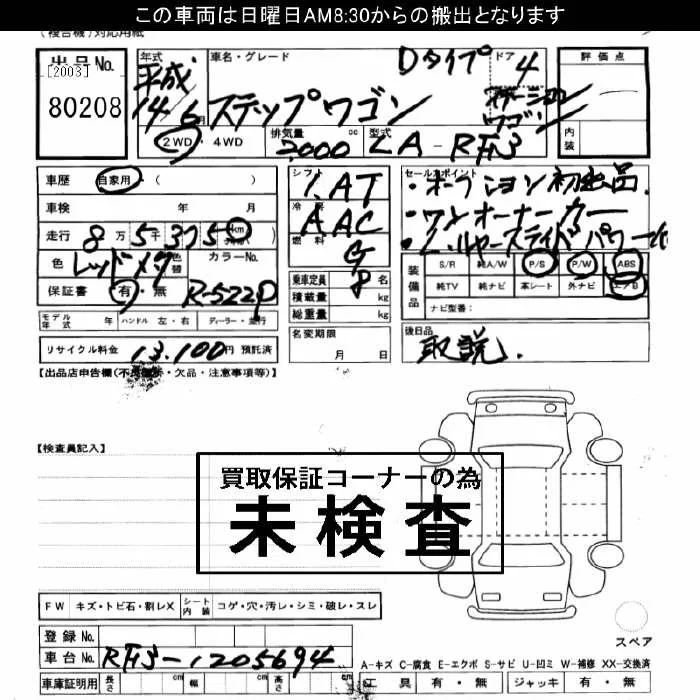 この車両は日曜日AM8:30からの搬出となります
(複合機)対応用紙
出品No. 年式 車名・グレード Dタイプ ドア 4 評価点
[2003] 平成 ステーション
80208 14 6月 ステップワゴン ワゴン
2WD・4WD 排気量 2000 cc 型式 LA-RF3 内装
車歴 自家用・( ) シフト 1.AT セールスポイント ・オープション初出品.
車検 年 月 冷房 AAC ・ワンオーナーカー
走行 8万5千375 km ( ) 燃料 G
色 レッドメタ 色替 カラーNo. 乗車定員 8名 装備品 S/R 純A/W P/S P/W ABS
保証書 有・無 R-522P 積載量 kg 純TV 純ナビ 革シート 外ナビ エアB
総重量 kg ナビ型番:
モデル年式 年 ハンドル 左・右 ディーラー・並行 名変期限 後日品
リサイクル料金 13.100円 預託済 月 日 取説.
【出品店申告欄(不具合箇所・欠品・注意事項等)】
【検査員記入】
買取保証コーナーの為
未検査
FW キズ・トビ石・割レX シート内装 コゲ・穴・汚レ・シミ・破レ・スレ
登録No. スペア
車台No. RF3-1205694 A-キズ C-腐食 E-エクボ S-サビ U-凹ミ W-補修 XX-交換済
車庫証明用 長さ cm 幅 cm 高さ cm 工具 有・無 ジャッキ 有・無